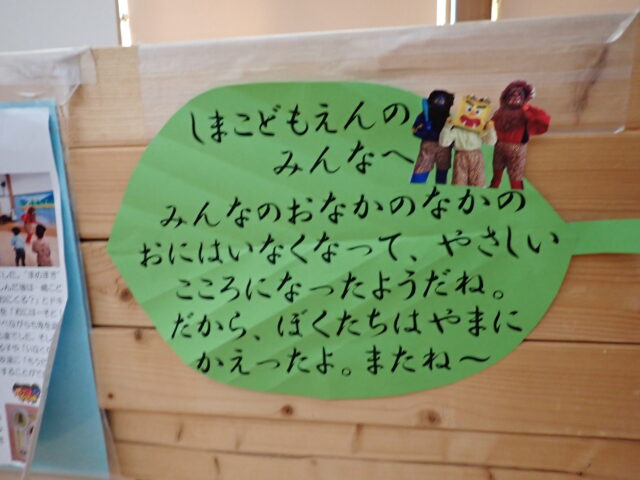 しまこどもえんの
みんなへ
みんなのおなかのなかの
おにはいなくなって、やさしい
こころになったようだね。
だから、ぼくたちはやまに
かえったよ。またね～